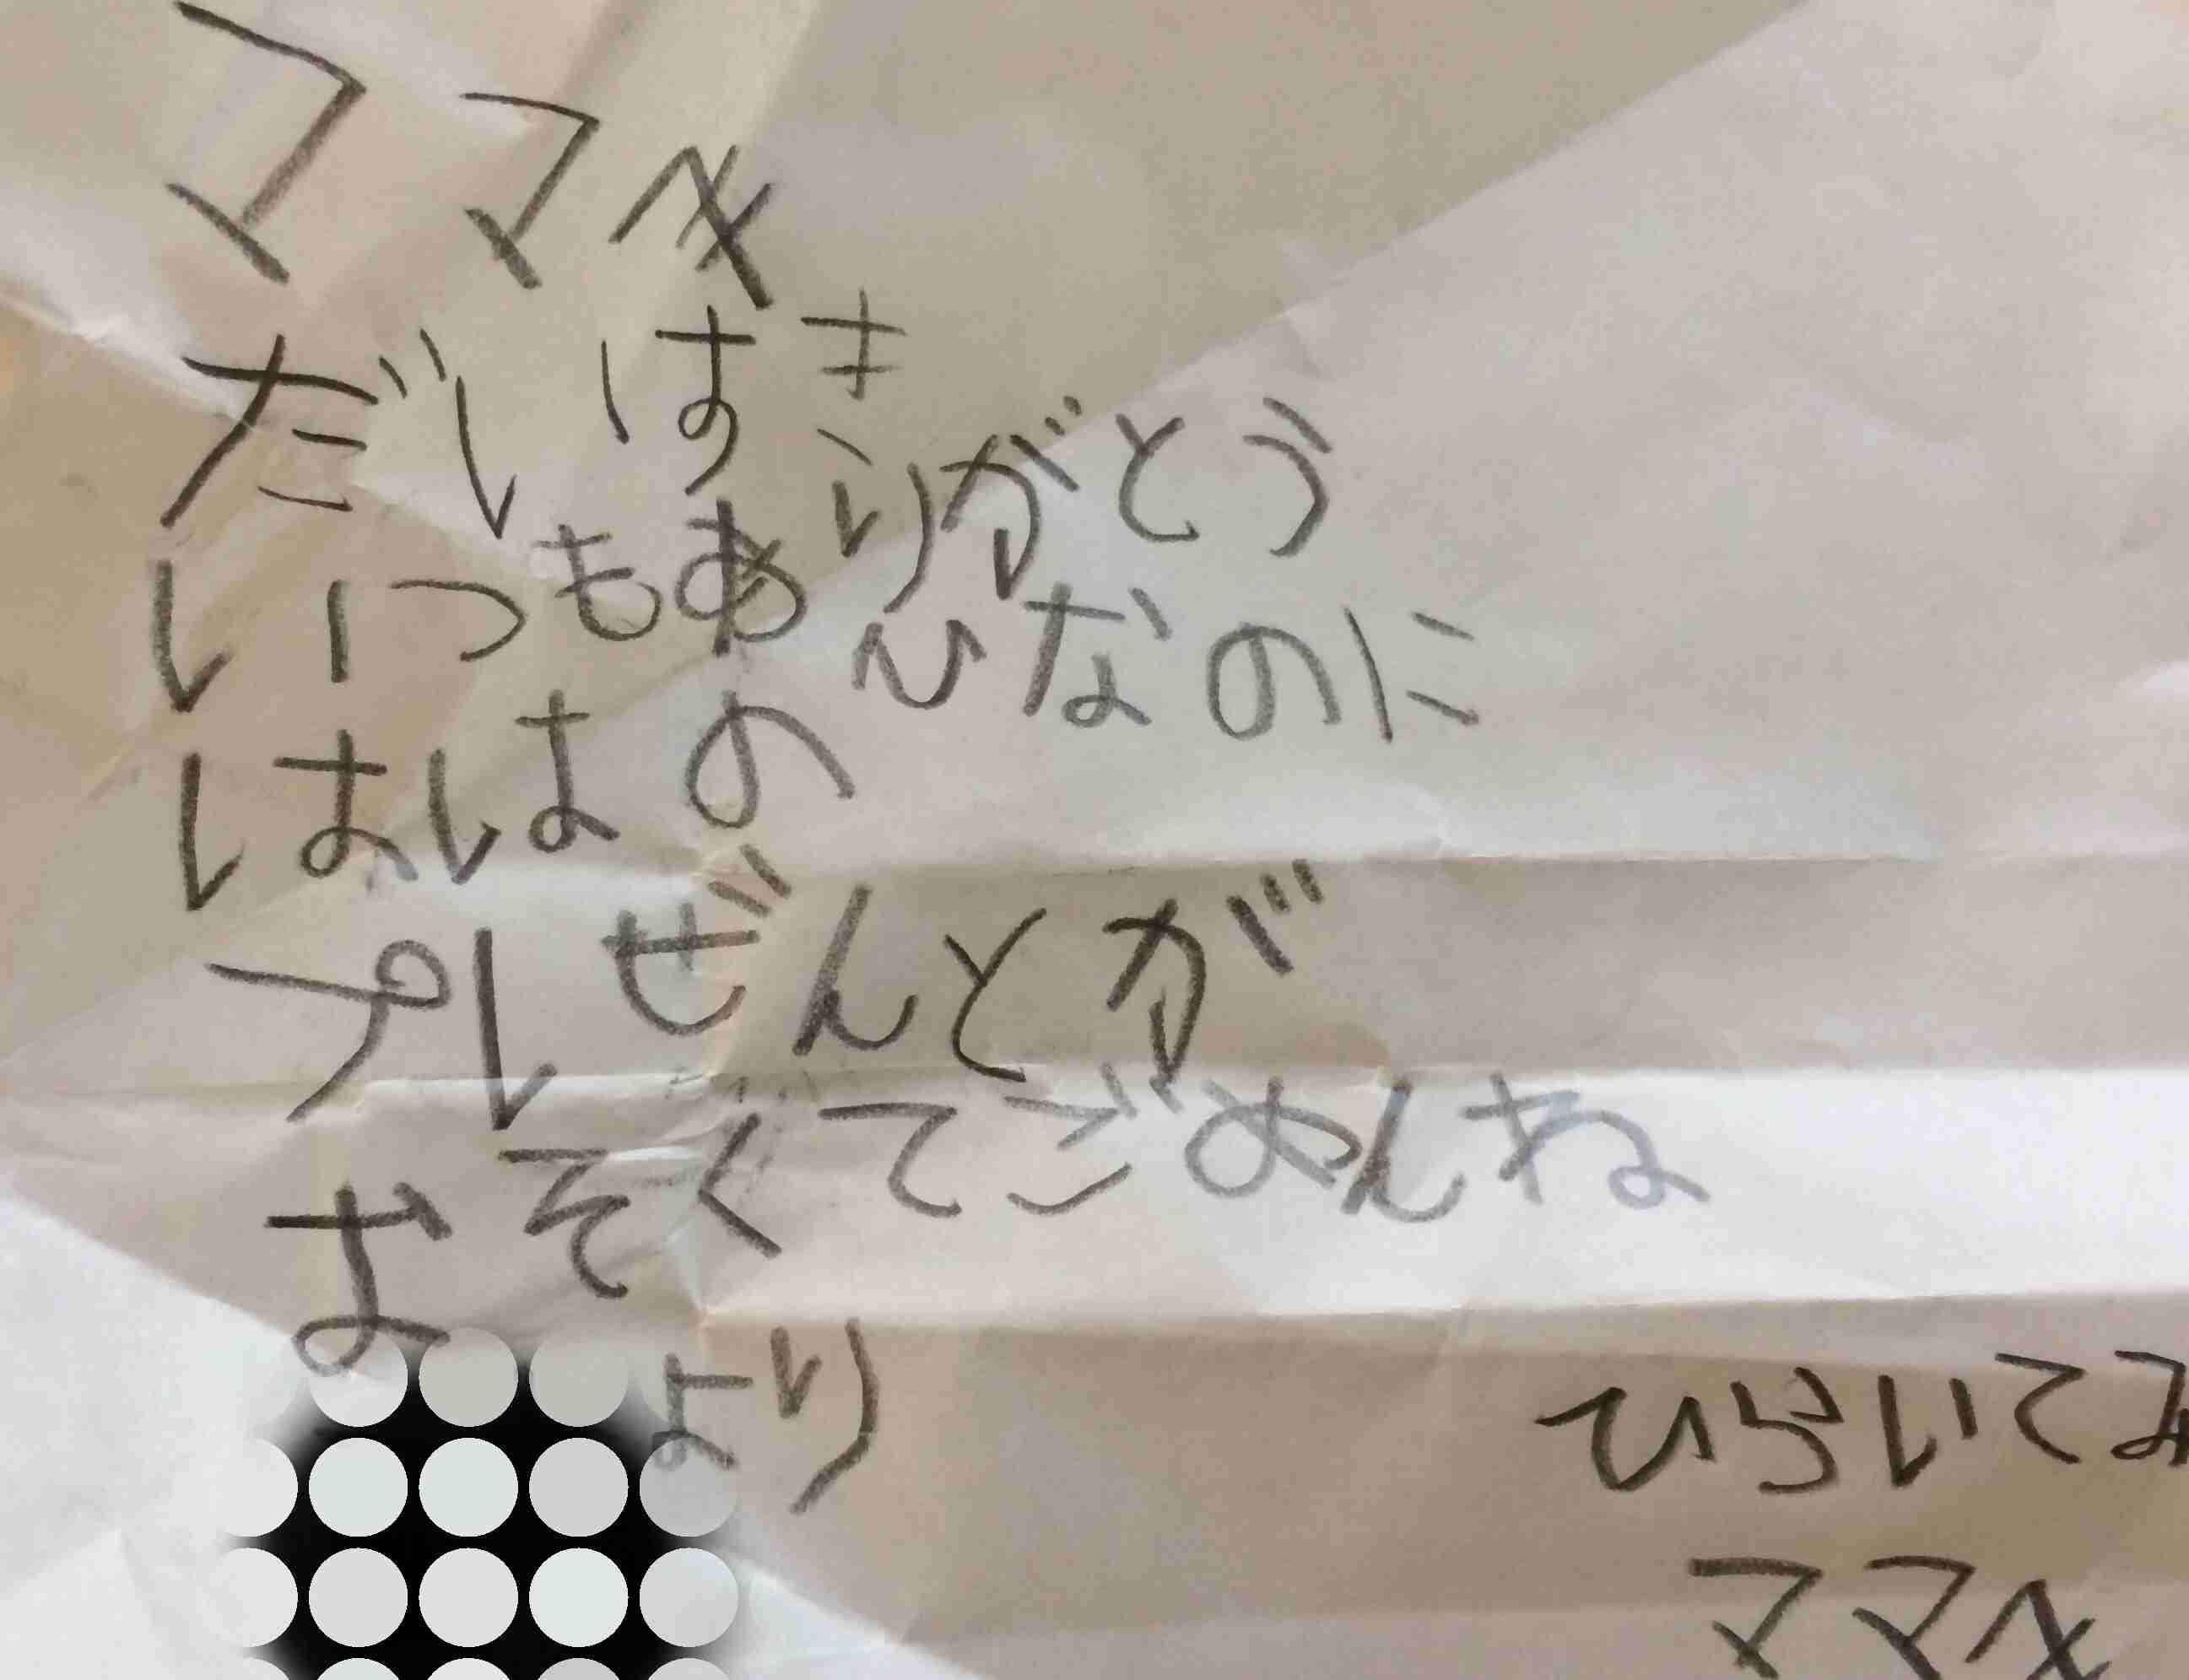 ママへ
だいすき
いつもありがとう
ははのひなのに
プレぜんとが
おそくてごめんね
より
ひらいてみ
ママへ